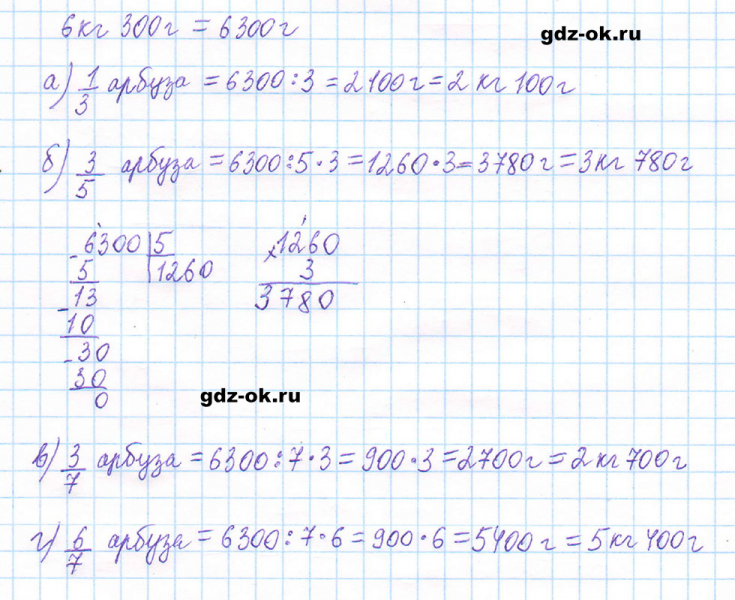 6кг 300г = 6300г
gdz-ok.ru
а) 1/3 арбуза = 6300:3 = 2100г = 2 кг 100г
б) 3/5 арбуза = 6300:5·3 = 1260·3 = 3780г = 3кг 780г
-6300|5
5 |1260
-13
10
-30
30
0
×1260
3
3780
gdz-ok.ru
в) 3/7 арбуза = 6300:7·3 = 900·3 = 2700г = 2кг 700г
г) 6/7 арбуза = 6300:7·6 = 900·6 = 5400г = 5кг 400г